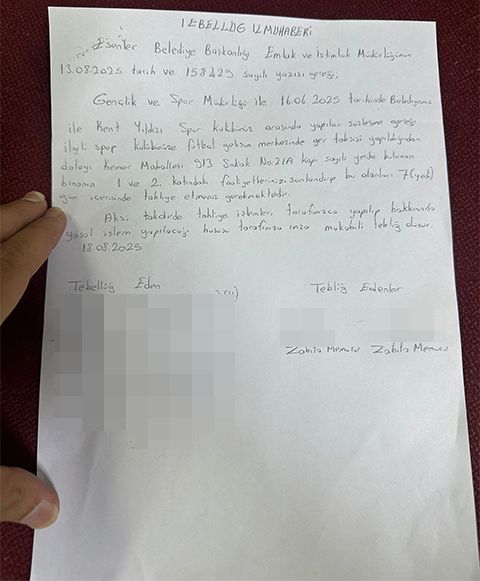 TEBELLÜĞ İLMUHABERİ
Esenler Belediye Başkanlığı Emlak ve İstimlak Müdürlüğünün
13.08.2025 tarih ve 158429 sayılı yazısı gereği;
Gençlik ve Spor Müdürlüğü ile 16.06.2025 tarihinde Belediyemiz
ile Kent Yıldızı Spor kulübünüz arasında yapılan sözleşme gereği
ilgili spor kulübünüze futbol gelişim merkezinde yer tahsisi yapıldığından
dolayı Kemer Mahallesi 913 Sokak No:21A kapı sayılı yerde bulunan
binanın 1 ve 2. katındaki faaliyetlerinizi sonlandırıp bu alanları 7(yedi)
gün içerisinde tahliye etmeniz gerekmektedir.
Aksi takdirde tahliye işlemleri tarafımızca yapılıp hakkınızda
yasal işlem yapılacağı hususu tarafınıza imza mukabili tebliğ olunur.
18.08.2025
Tebellüğ Eden Tebliğ Edenler
Zabıta Memuru Zabıta Memuru